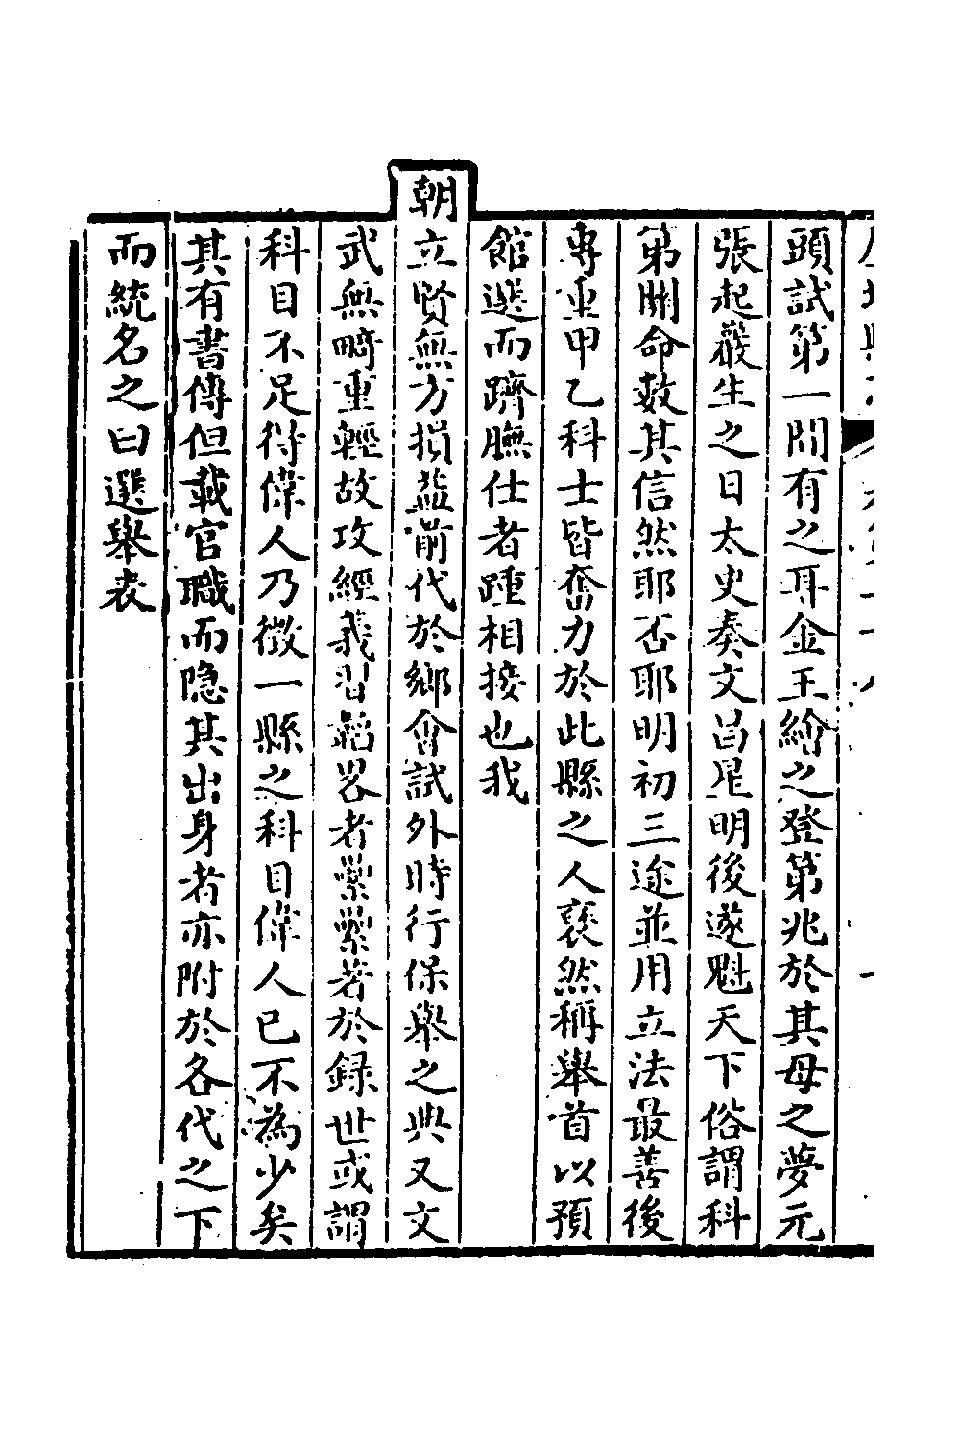 頭試第一間有之耳金王繪之登第兆於其母之夢元
張起巖生之日太史奏文昌星明後遂魁天下俗謂科
第關命數其信然耶否耶明初三途並用立法最善後
專重甲乙科士皆奮力於此縣之人褎然稱舉首以預
館選而躋膴仕者踵相接也我
朝立賢無方損益前代於鄉會試外時行保舉之典又文
武無畸重輕故攻經義習韜畧者纍纍著於録世或謂
科目不足得偉人乃徵一縣之科目偉人已不為少矣
其有書傳但載官職而隐其出身者亦附於各代之下
而統名之曰選舉表